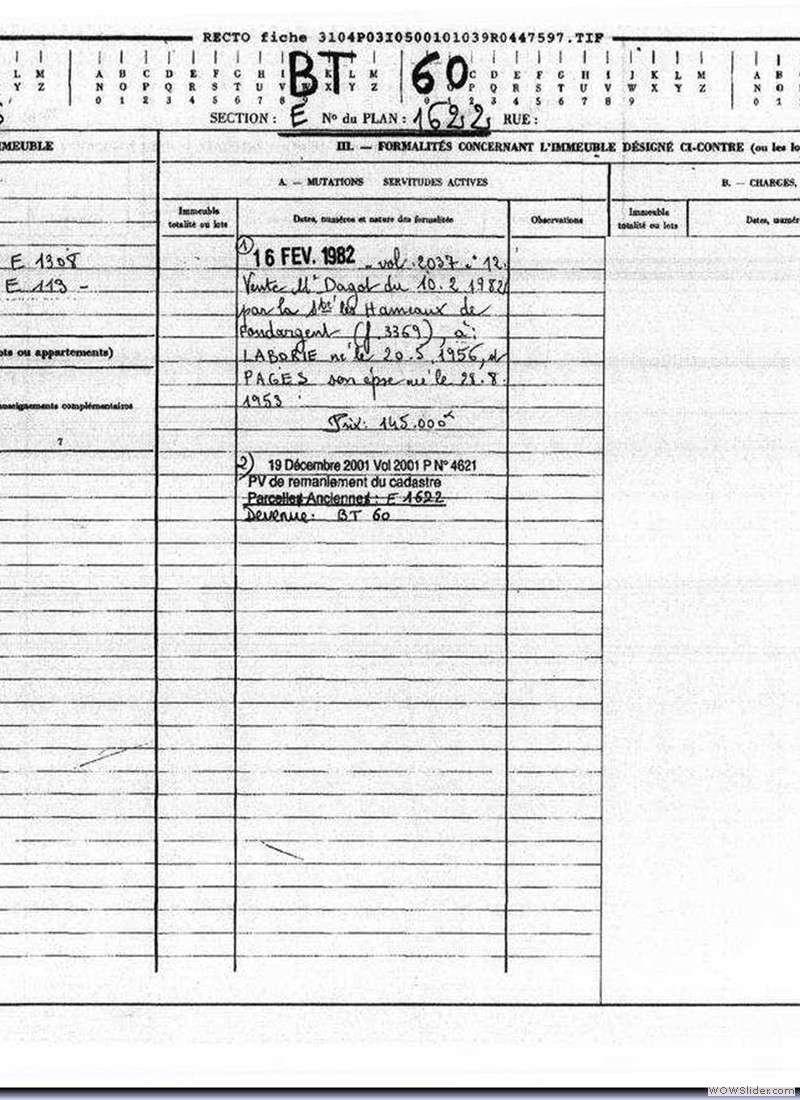 RECTO fiche 3104P03I0500101039R0447597.TIF
L M A B C D E F G H I K L M C D E F G H I J K L M A B
Y Z N O P Q R S T U V X Y Z P Q R S T U V W X Y Z N O
0 1 2 3 4 5 6 7 8 9 0 1 2 3 4 5 6 7 8 9 0 1
BT 60
SECTION : E No du PLAN : 1622 RUE :
MMEUBLE
III. — FORMALITÉS CONCERNANT L'IMMEUBLE DÉSIGNÉ CI-CONTRE (ou les lo
A. — MUTATIONS SERVITUDES ACTIVES
B. — CHARGES,
Immeuble
totalité ou lots
Dates, numéros et nature des formalités
Observations
Immeuble
totalité ou lots
Dates, numér
E 1308
E 113 -
ots ou appartements)
nseignements complémentaires
7
1) 16 FEV. 1982 vol. 2037 n° 12.
Vente Me Dagot du 10.2.1982
par la Sté les Hameaux de
Fondargent (f. 3369), à :
LABORIE né le 20.5.1956, et
PAGES son épse née le 28.8.
1953
Prix: 145.000
2) 19 Décembre 2001 Vol 2001 P N° 4621
PV de remaniement du cadastre
Parcelles Anciennes : E 1622
Devenue: BT 60
WOWSlider.com